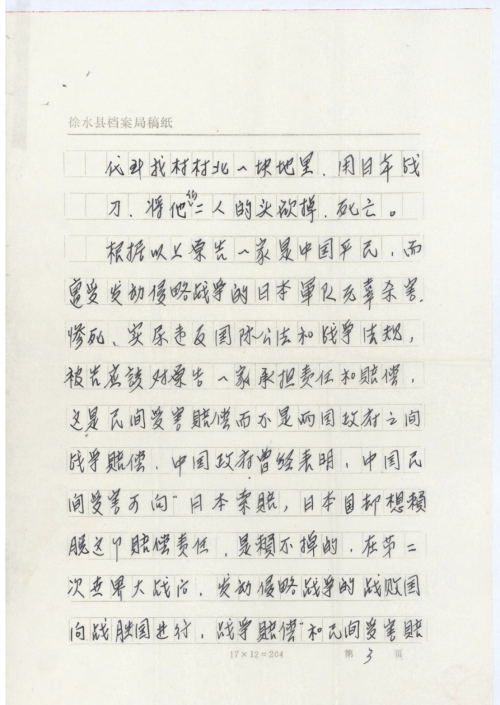 徐水县档案局稿纸
我村村北一块地里，用日军战
刀，将他们二人的头砍掉，死亡。
根据以上原告一家是中国平民，而
遭受发动侵略战争的日本軍队无辜杀害，
惨死，实属违反国际公法和战争法规，
被告应該对原告一家承担责任和賠偿，
这是民间受害賠偿而不是两国政府之间
战争賠偿，中国政府曾经表明，中国民
间受害可向"日本索賠，日本国却想賴
脱这个賠偿责任，是賴不掉的，在第二
次世界大战后，发动侵略战争的战败国
向战胜国进行，战争賠偿"和民间受害賠
17×12=204 第 3 頁